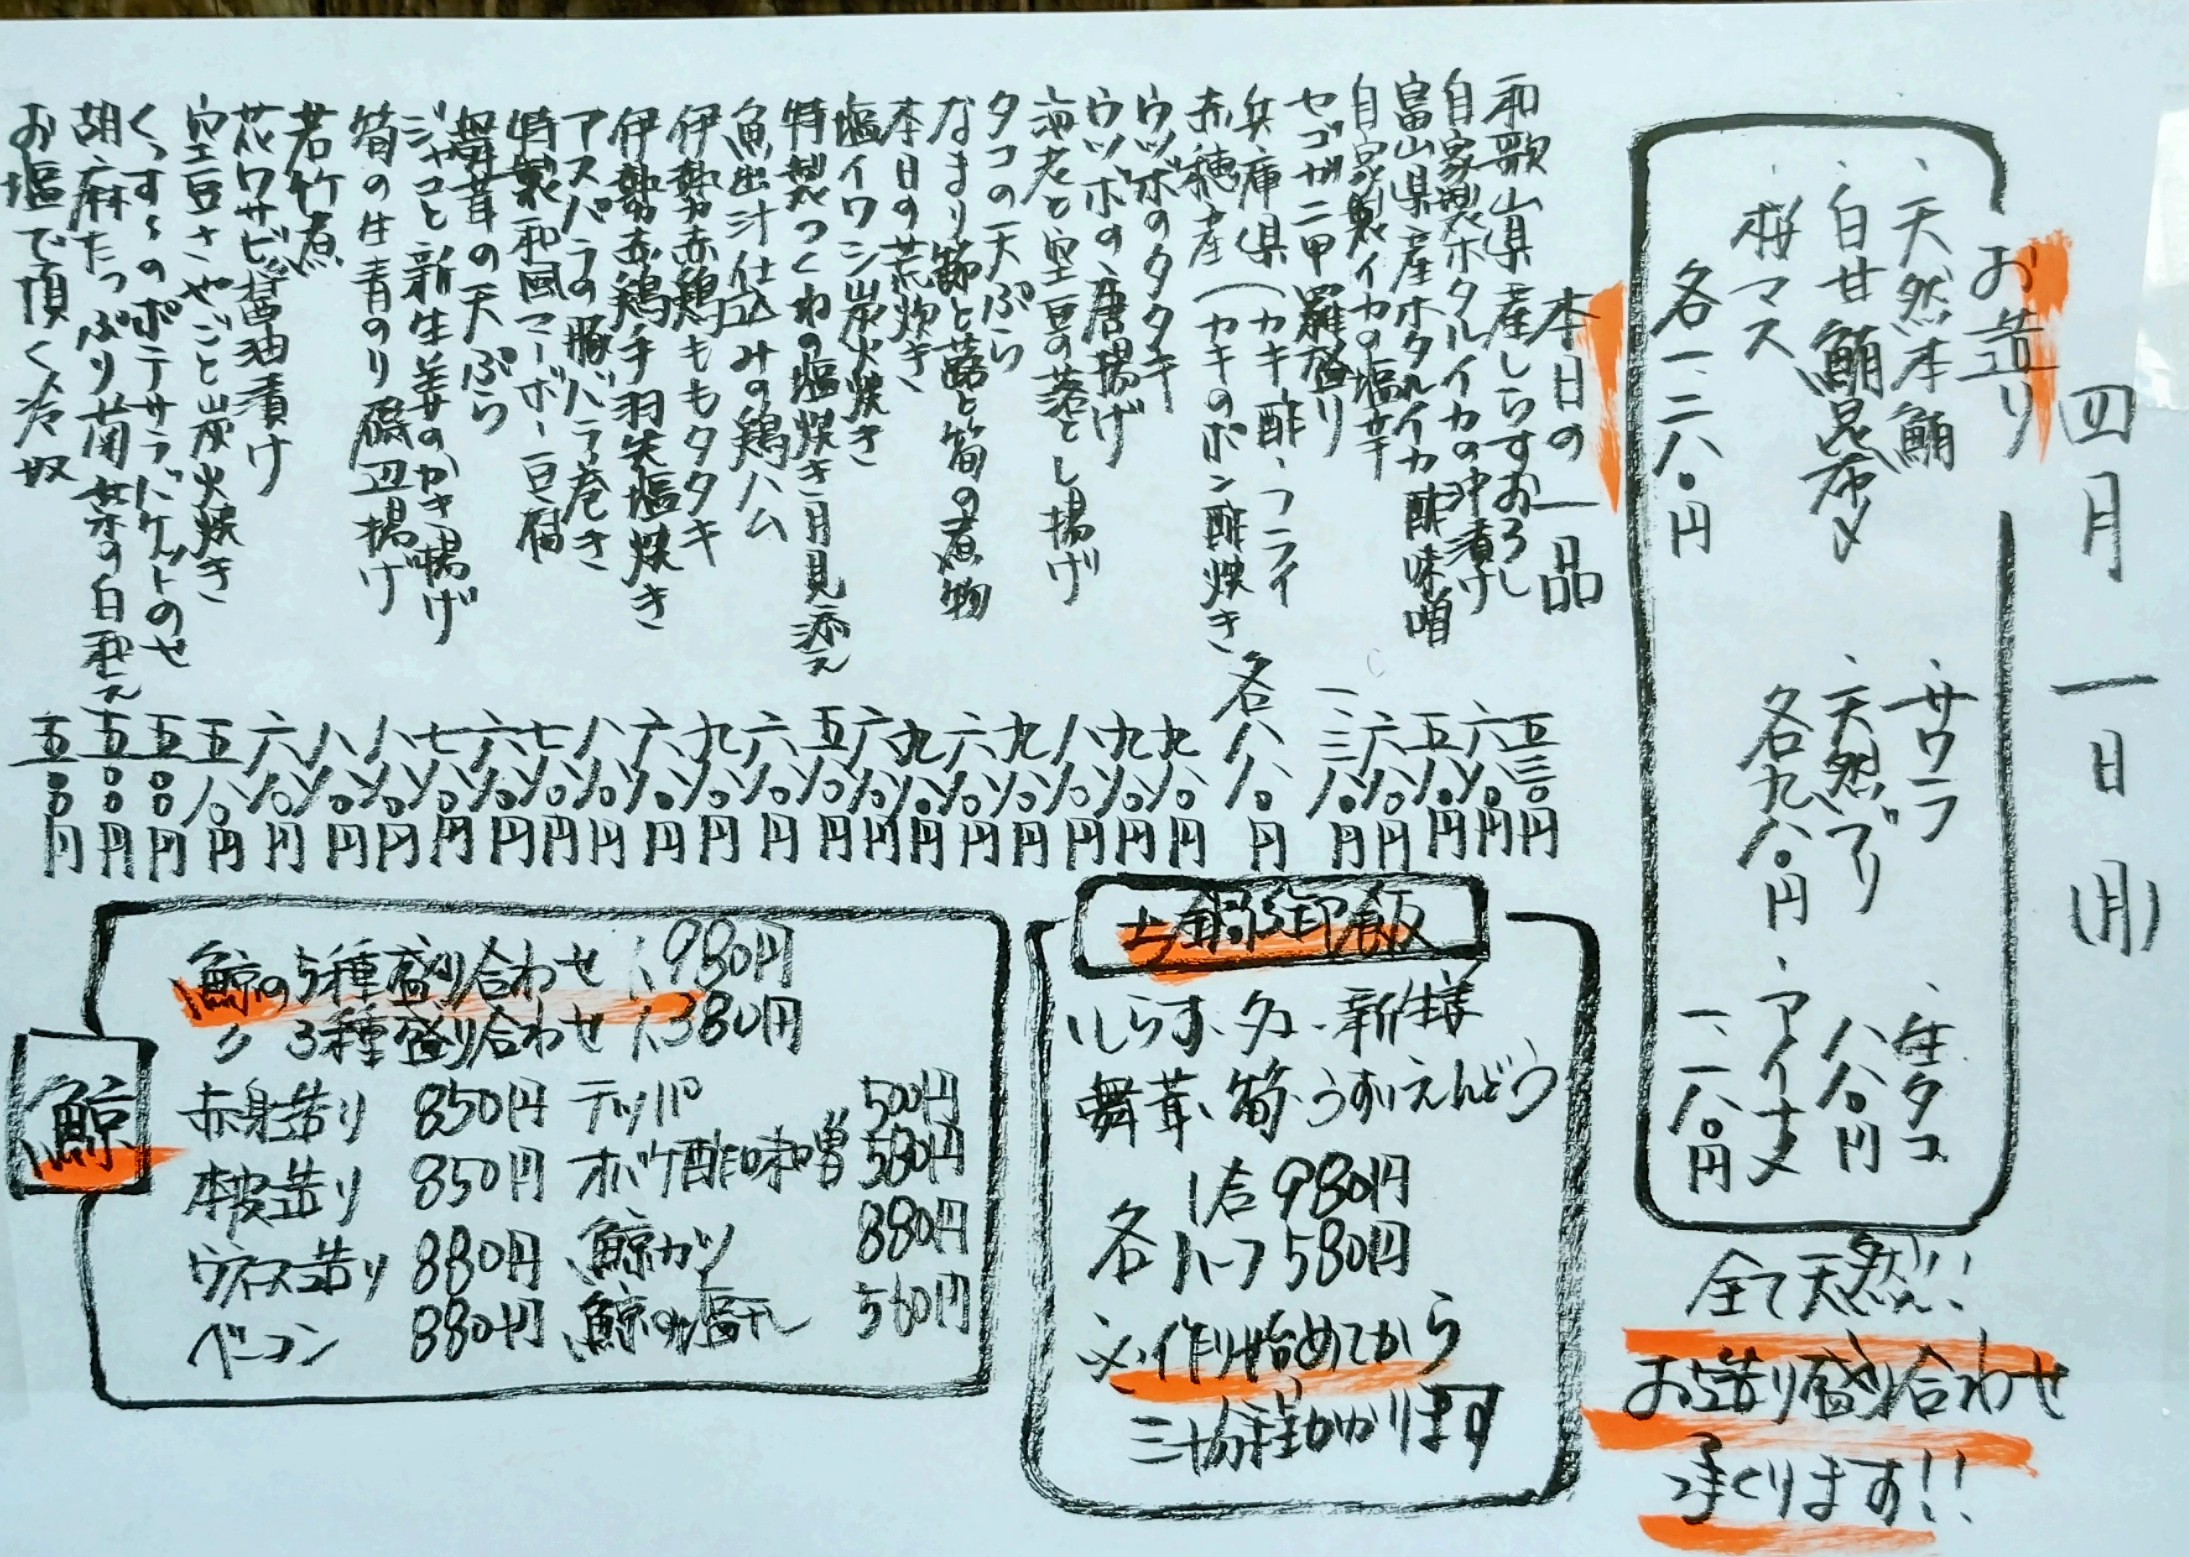 四月一日(月)
お造り
・天然本鮪
・白甘鯛昆布〆
・桜マス
各一、二八〇円
・サワラ
・天然ブリ
各九八〇円
・生タコ
八八〇円
・アイナメ
一、一八〇円
全て天然!!
お造り盛り合わせ
承くります!!
本日の一品
和歌山県産しらすおろし 五三〇円
自家製ホタルイカの沖漬け 六八〇円
富山県産ホタルイカ酢味噌 五八〇円
自家製イカの塩辛 六八〇円
セコガニ甲羅盛り 一、三八〇円
兵庫県(カキ酢・フライ
赤穂産(カキのポン酢焼き 各八八〇円
ウツボのタタキ 九八〇円
ウツボの唐揚げ 九八〇円
海老と空豆の落とし揚げ 八八〇円
タコの天ぷら 九八〇円
なまり節と蕗と筍の煮物 六八〇円
本日の荒炊き 九八〇円
塩イワシ炭火焼き 六八〇円
特製つくねの塩焼き月見添え 五八〇円
魚出汁仕込みの鶏ハム 六八〇円
伊勢赤鶏ももタタキ 九八〇円
伊勢赤鶏手羽先塩焼き 六八〇円
アスパラの豚バラ巻き 八八〇円
特製和風マーボー豆腐 七八〇円
舞茸の天ぷら 六八〇円
ジャコと新生姜のかき揚げ 七八〇円
筍の生青のり磯辺揚げ 八八〇円
若竹煮 八八〇円
花ワサビ醤油漬け 六八〇円
空豆さやごと炭火焼き 五八〇円
くっすーのポテサラバケットのせ 五〇〇円
胡麻たっぷり菊菜の白和え 五〇〇円
お塩で頂く冷奴 五〇〇円
土鍋御飯
しらす、タコ、新生姜
舞茸、筍、うすいえんどう
各 1合 980円
ハーフ 580円
※作り始めてから
三十分程かかります
鯨
鯨の5種盛り合わせ 1,980円
〃 3種盛り合わせ 1,380円
赤身造り 850円 テッパ 500円
本皮造り 850円 オバケ酢味噌 580円
ウネス造り 880円 鯨カツ 880円
ベーコン 880円 鯨の塩干し 560円